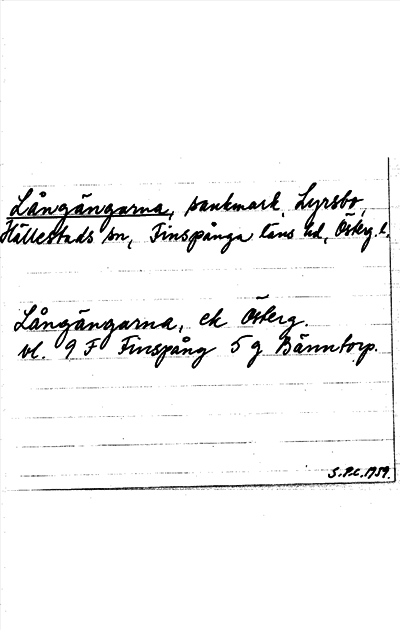 Långängarna, sankmark, Lyrsbo,
Hällestads sn, Finspånga läns hd, Österg. l.
Långängarna, ek Österg.
vl. 9 F Finspång 5 g Bänntorp.
S.P.C. 1959.